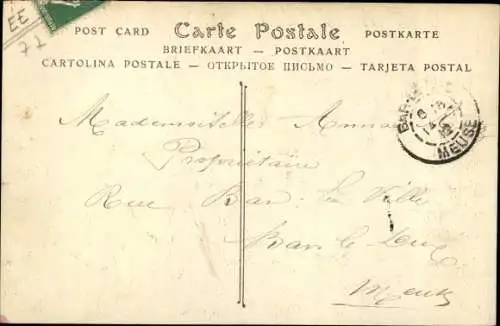 EE
72
POST CARD Carte Postale POSTKARTE
BRIEFKAART — POSTKAART
CARTOLINA POSTALE — ОТКРЫТОЕ ПИСЬМО — TARJETA POSTAL
BAR-
MEUSE
Mademoiselles
Propriétaire
Rue Bar: La Ville
Bar le Duc
Meuse